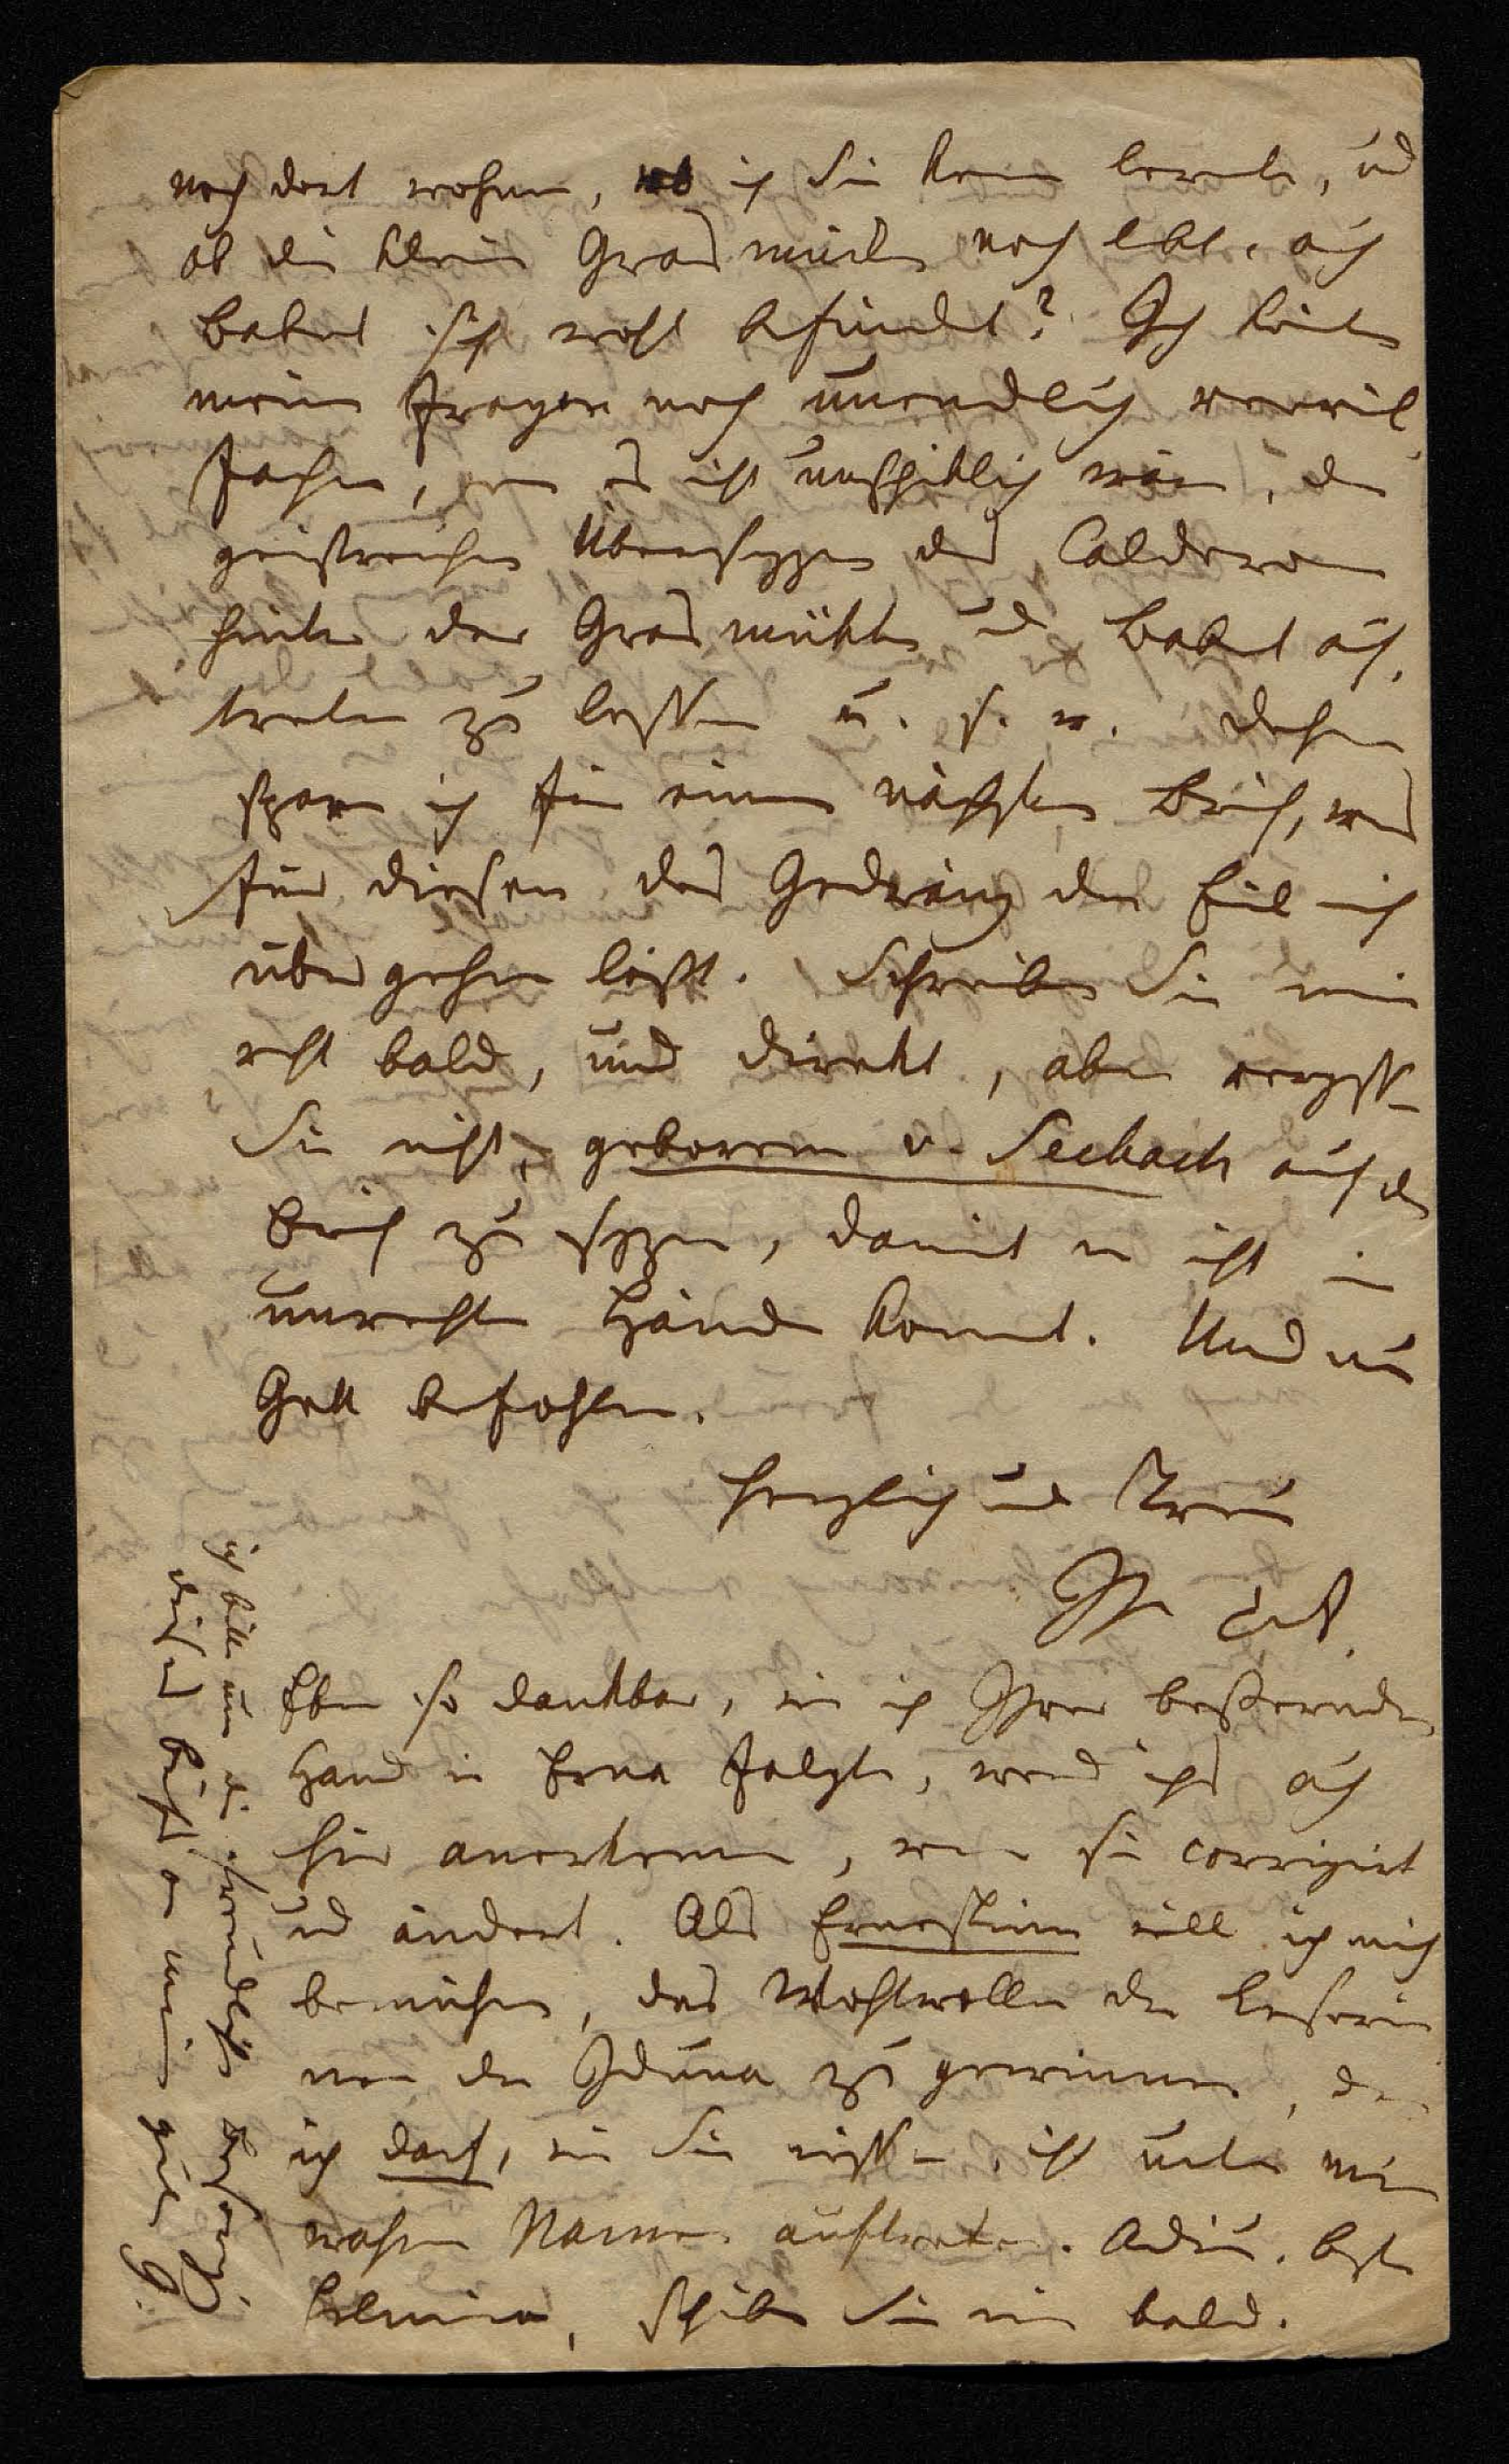 noch dort wohnen, wo ich Sie kennen lernte, und
ob die kleine Grasmücke noch lebt, auch
Babet sich wohl befindet? Ich könte
meine Fragen noch unendlich verviel
fachen, wenn es nicht unschiklich wäre, den
geistreichen Übersezzer des Calderon
hinter der Grasmükke und Babet auf,
treten zu lassen u. s. w. daher
spare ich für einen nächsten Brief, was
für diesen das Gedräng der Eil mich
übergehen lässt. Schreiben Sie mir
recht bald, und direkt, aber vergessen
Sie nicht, geborene v. Seebach auf den
Brief zu sezzen, damit er nicht in
unrechte Hände komt. Und nun
Gott befohlen.
Herzlich und Treu
Ihre
Eben so dankbar, wie ich Ihrer beßernden
Hand in Erna folgte, werd ichs auch
hier anerkennen, wenn sie corrigirt
und ändert. Als Ernestine will ich mich
bemühen, das Wohlwollen der Leserin
nen der Iduna zu gewinnen, denn
ich darf, wie Sie wissen, nicht unter meinem
wahren Namen auftreten. Adieu, beste
Helmina, schreiben Sie mir bald.
ich bitte um die freundliche Besorgung
dieses Briefs an meine gute